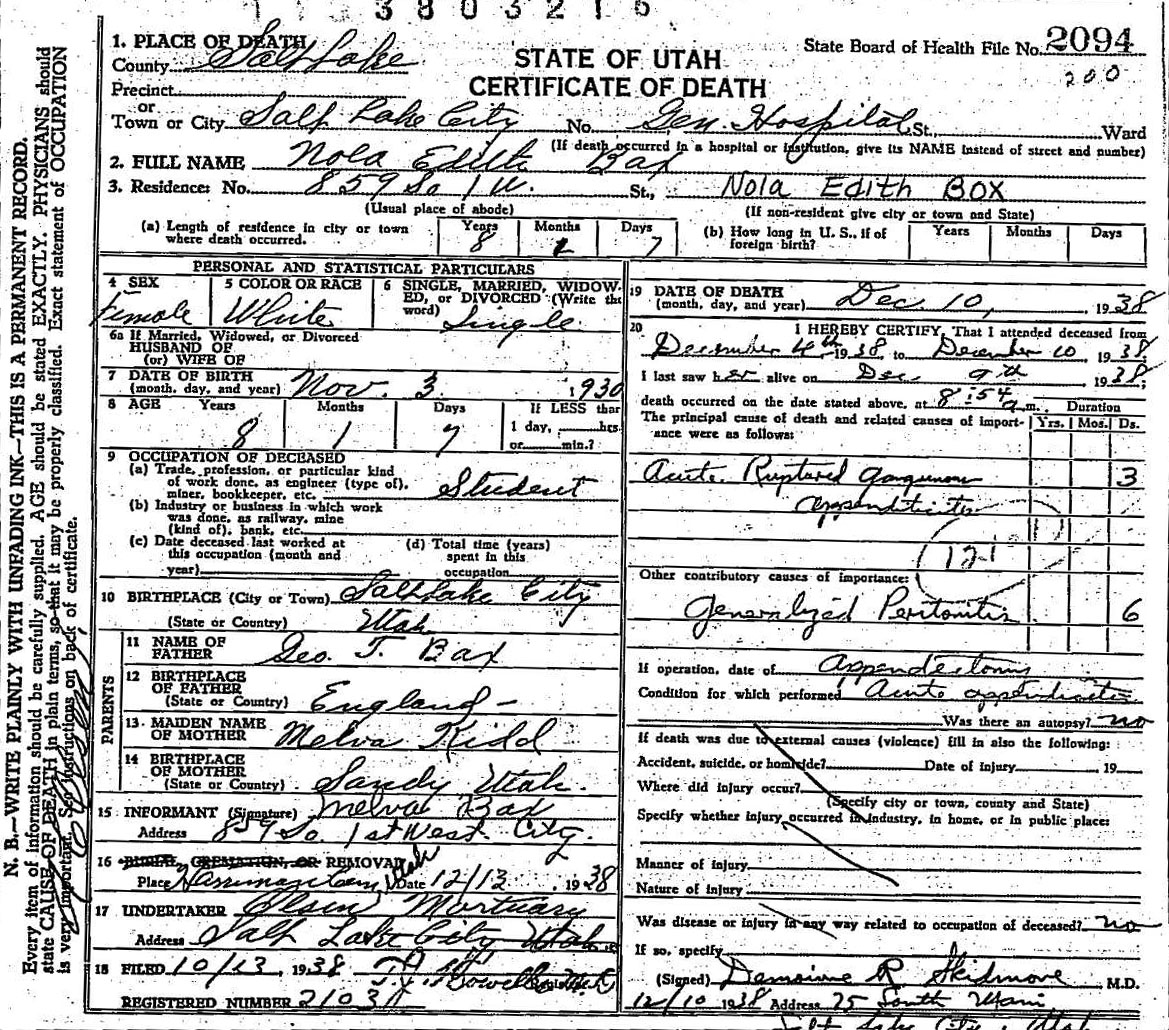 3803216
1. PLACE OF DEATH
County Salt Lake
STATE OF UTAH
CERTIFICATE OF DEATH
State Board of Health File No. 2094
200
Precinct
or
Town or City Salt Lake City No. Gen. Hospital St. Ward
(If death occurred in a hospital or institution, give its NAME instead of street and number)
2. FULL NAME Nola Edith Box
3. Residence: No. 859 So 1 W. St., Nola Edith BOX
(Usual place of abode) (If non-resident give city or town and State)
(a) Length of residence in city or town where death occurred. Years 8 Months Days 7
(b) How long in U. S., if of foreign birth? Years Months Days
PERSONAL AND STATISTICAL PARTICULARS
4 SEX Female
5 COLOR OR RACE White
6 SINGLE, MARRIED, WIDOWED, or DIVORCED (Write the word) Single
6a If Married, Widowed, or Divorced
HUSBAND OF
(or) WIFE OF
7 DATE OF BIRTH
(month, day, and year) Nov. 3 1930
8 AGE Years 8 Months 1 Days 7
If LESS than
1 day, hrs.
or min.?
9 OCCUPATION OF DECEASED
(a) Trade, profession, or particular kind
of work done, as engineer (type of),
miner, bookkeeper, etc. Student
(b) Industry or business in which work
was done, as railway, mine
(kind of), bank, etc.
(c) Date deceased last worked at
this occupation (month and
year)
(d) Total time (years)
spent in this
occupation
10 BIRTHPLACE (City or Town) Salt Lake City
(State or Country) Utah
PARENTS
11 NAME OF
FATHER Geo. T. Box
12 BIRTHPLACE
OF FATHER
(State or Country) England
13 MAIDEN NAME
OF MOTHER Melva Kidd
14 BIRTHPLACE
OF MOTHER
(State or Country) Sandy Utah
15 INFORMANT (Signature) Melva Box
Address 859 So 1st West City.
16 BURIAL, CREMATION, OR REMOVAL
Place Harriman Cem, Utah Date 12/13 1938
17 UNDERTAKER Olsen Mortuary
Address Salt Lake City Utah
18 FILED 10/13, 1938
REGISTERED NUMBER 2103
19 DATE OF DEATH
(month, day, and year) Dec. 10, 1938
20 I HEREBY CERTIFY, That I attended deceased from
December 4th 1938, to December 10 1938.
I last saw her alive on Dec 9th 1938,
death occurred on the date stated above, at 8:54 a.m. Duration
The principal cause of death and related causes of importance were as follows: Yrs. Mos. Ds.
Acute Ruptured Gangrenous 3
appendicitis
121
Other contributory causes of importance:
Generalized Peritonitis 6
If operation, date of Appendectomy
Condition for which performed Acute appendicitis
Was there an autopsy? no
If death was due to external causes (violence) fill in also the following:
Accident, suicide, or homicide? Date of injury 19
Where did injury occur?
(Specify city or town, county and State)
Specify whether injury occurred in industry, in home, or in public place:
Manner of injury
Nature of injury
Was disease or injury in any way related to occupation of deceased? no
If so, specify
(Signed) R Skidmore M.D.
12/10 1938 Address 25 South Main
Salt Lake City, Utah
N. B.—WRITE PLAINLY WITH UNFADING INK—THIS IS A PERMANENT RECORD.
Every item of information should be carefully supplied. AGE should be stated EXACTLY. PHYSICIANS should
state CAUSE OF DEATH in plain terms, so that it may be properly classified. Exact statement of OCCUPATION
is very important. See instructions on back of certificate.